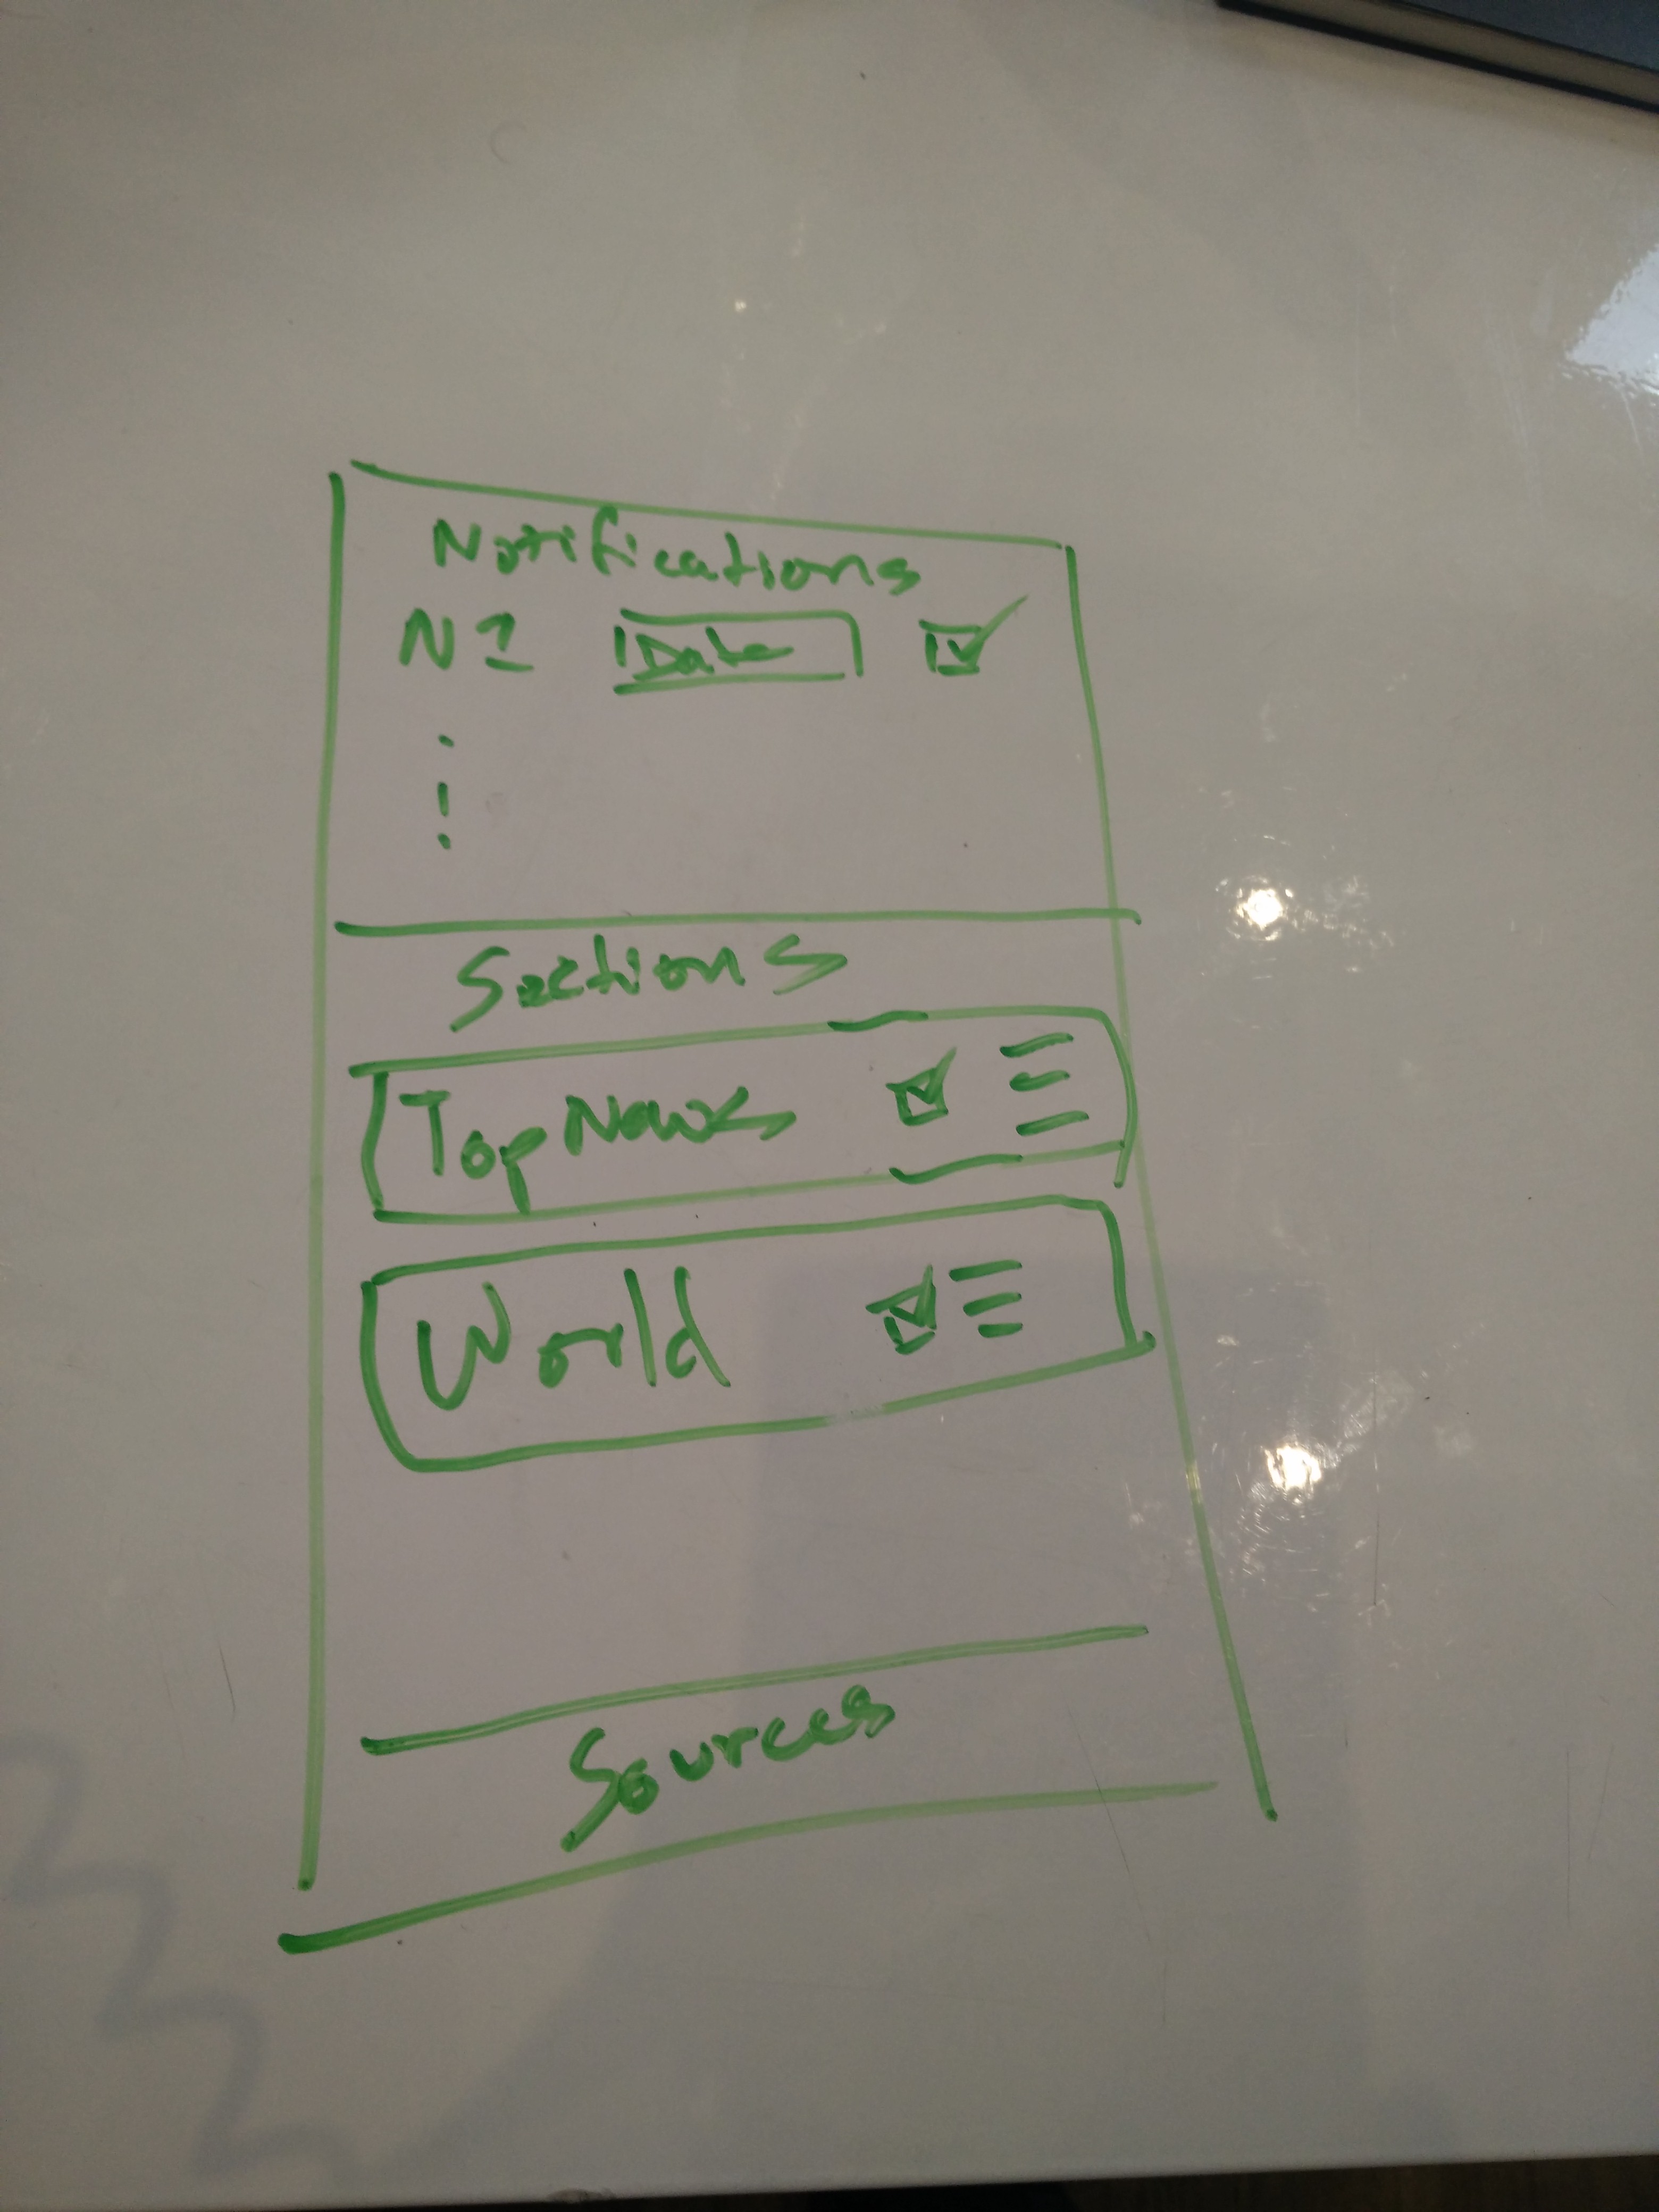 Notifications
N1 Date
Sections
Top News
World
Sources